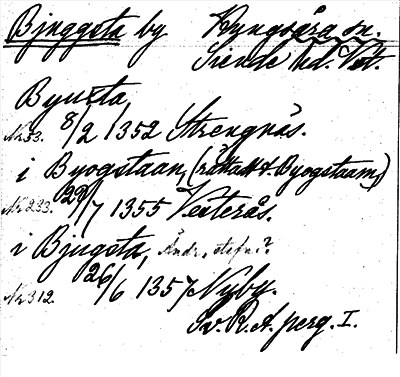 Bjuggsta by Kyngsåra sn.
Siende hd. Vst.
Byusta
Nr 33. 8/2 1352 Strengnäs.
i Byogstaan, (rättat t. Byogstaam,)
Nr 233. 29/7 1355 Vesterås.
i Bjugsta, Ändr., stefn.?
Nr 312. 26/6 1357 Nyby.
Sv. R. A. perg. I.